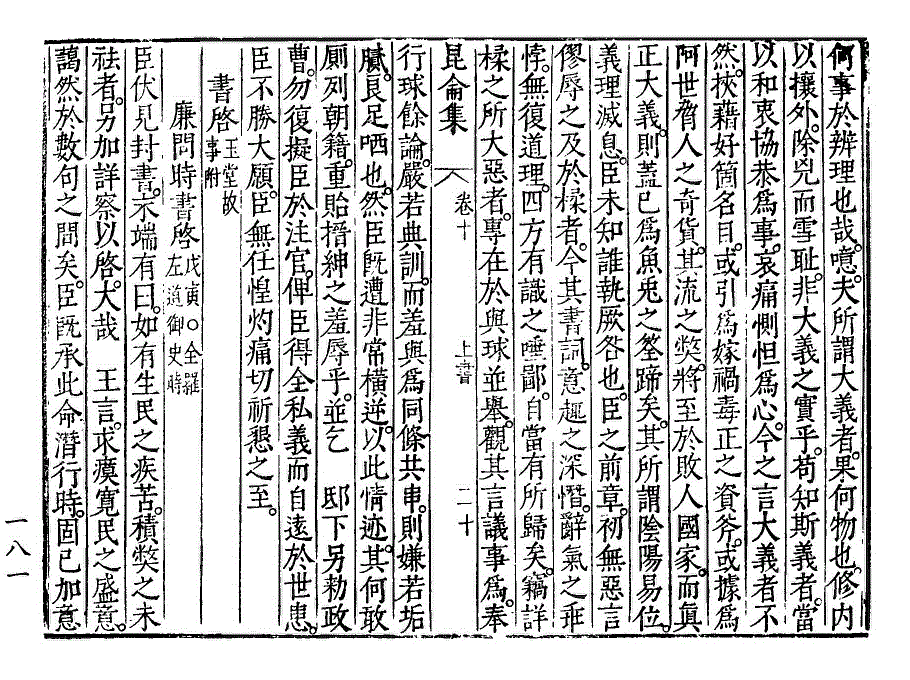 何事於辨理也哉。噫。夫所謂大義者。果何物也。修内
以攘外。除兇而雪耻。非大義之實乎。苟知斯義者。當
以和衷協恭爲事。哀痛惻怛爲心。今之言大義者不
然。挾藉好箇名目。或引爲嫁禍毒正之資斧。或據爲
阿世脅人之奇貨。其流之獘。將至於敗人國家。而眞
正大義。則蓋已爲魚兎之筌蹄矣。其所謂陰陽易位。
義理滅息。臣未知誰執厥咎也。臣之前章。初無惡言
僇辱之及於㰒者。今其書詞意趣之深憯。辭氣之乖
悖。無復道理。四方有識之唾鄙。自當有所歸矣。竊詳
㰒之所大惡者。專在於與球並舉。觀其言議事爲。奉
昆侖集 卷十 上書 二十
行球餘論。嚴若典訓。而羞與爲同條共串。則嫌若垢
膩。良足哂也。然臣旣遭非常橫逆。以此情迹。其何敢
厠列朝籍。重貽搢紳之羞辱乎。並乞 邸下另勑政
曹。勿復擬臣於注官。俾臣得全私義而自遠於世患。
臣不勝大願。臣無任惶灼痛切祈懇之至。
書啓玉堂故事附
廉問時書啓戊寅○全羅左道御史時
臣伏見封書。末端有曰。如有生民之疾苦。積獘之未
祛者。另加詳察以啓。大哉 王言。求瘼寬民之盛意。
藹然於數句之間矣。臣旣承此命。潛行時。固已加意
一八一